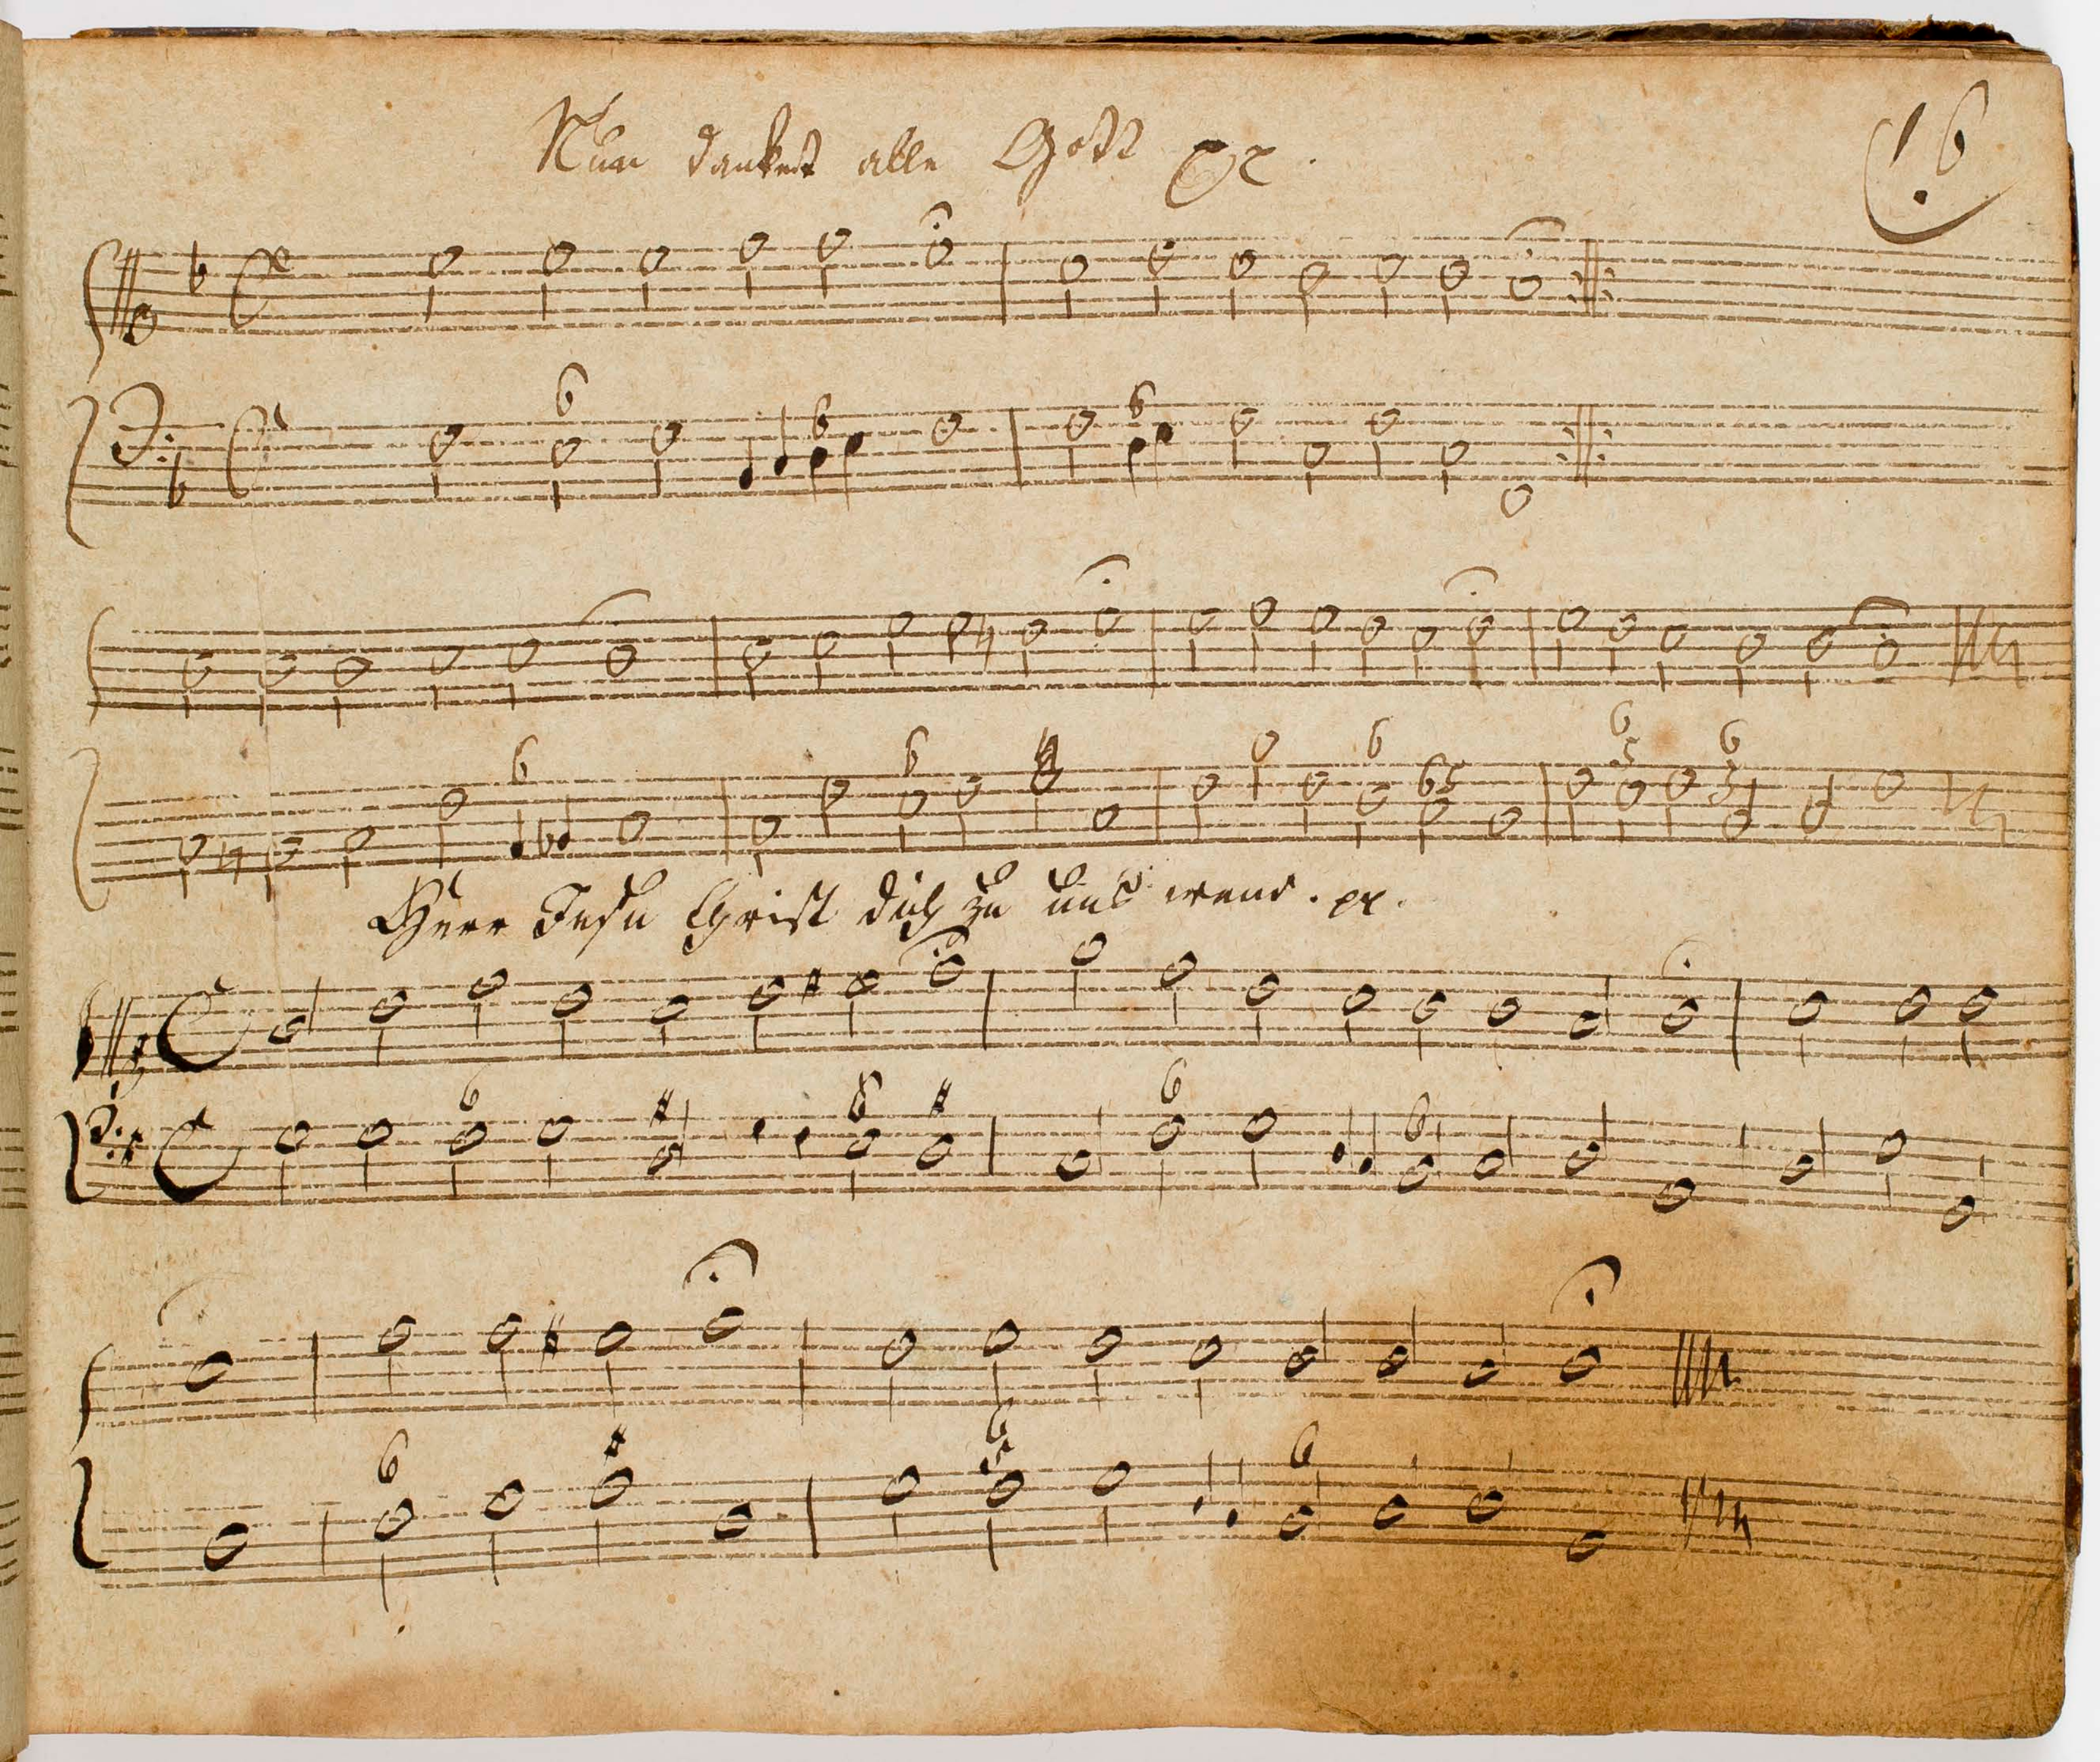 Nun danket alle Gott pp.
16
Herr Jesu Christ dich zu uns wend. pp.